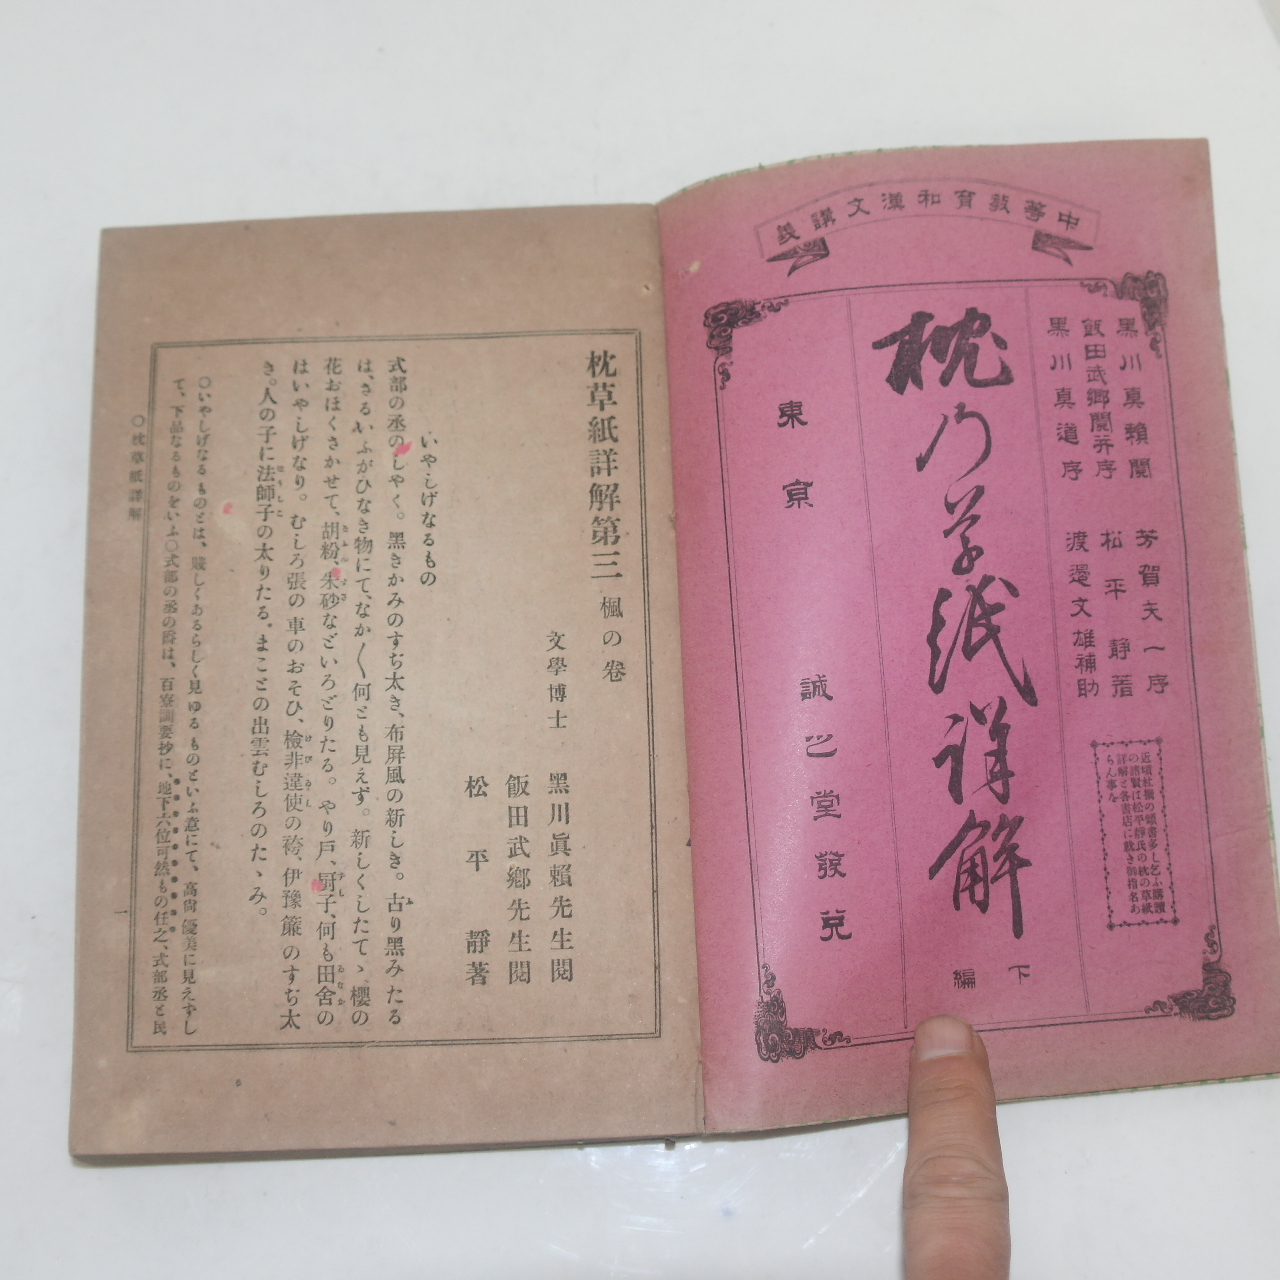 中等教育和漢文講義
黒川真頼閲
飯田武郷閲并序
黒川真道序
芳賀矢一序
松平静著
渡邉文雄補助
近頃杜撰の類書多し乞ふ購讀
の諸賢は松平靜氏の枕の草紙
詳解と各書店に就き御指名あ
らん事を
枕乃草紙詳解
下編
東京
誠之堂發兌
枕草紙詳解第三 楓の卷
文學博士 黑川眞賴先生閱
飯田武鄕先生閱
松平靜著
いやしげなるもの
式部の丞のしやく。黑きかみのすぢ太き、布屏風の新しき。古り黑みたる
は、さるいふがひなき物にて、なか〱何とも見えず。新しくしたてゝ、櫻の
花おほくさかせて、胡粉、朱砂などいろどりたる。やり戶、厨子、何も田舍の
はいやしげなり。むしろ張の車のおそひ、檢非違使の袴、伊豫簾のすぢ太
き。人の子に法師子の太りたる。まことの出雲むしろのたゝみ。
〇いやしげなるものとは、賤しくあるらしく見ゆるものといふ意にて、高尙優美に見えずし
て、下品なるものをいふ〇式部の丞の爵は、百寮訓要抄に、地下六位可然もの任之、式部丞と民
〇枕草紙詳解
一